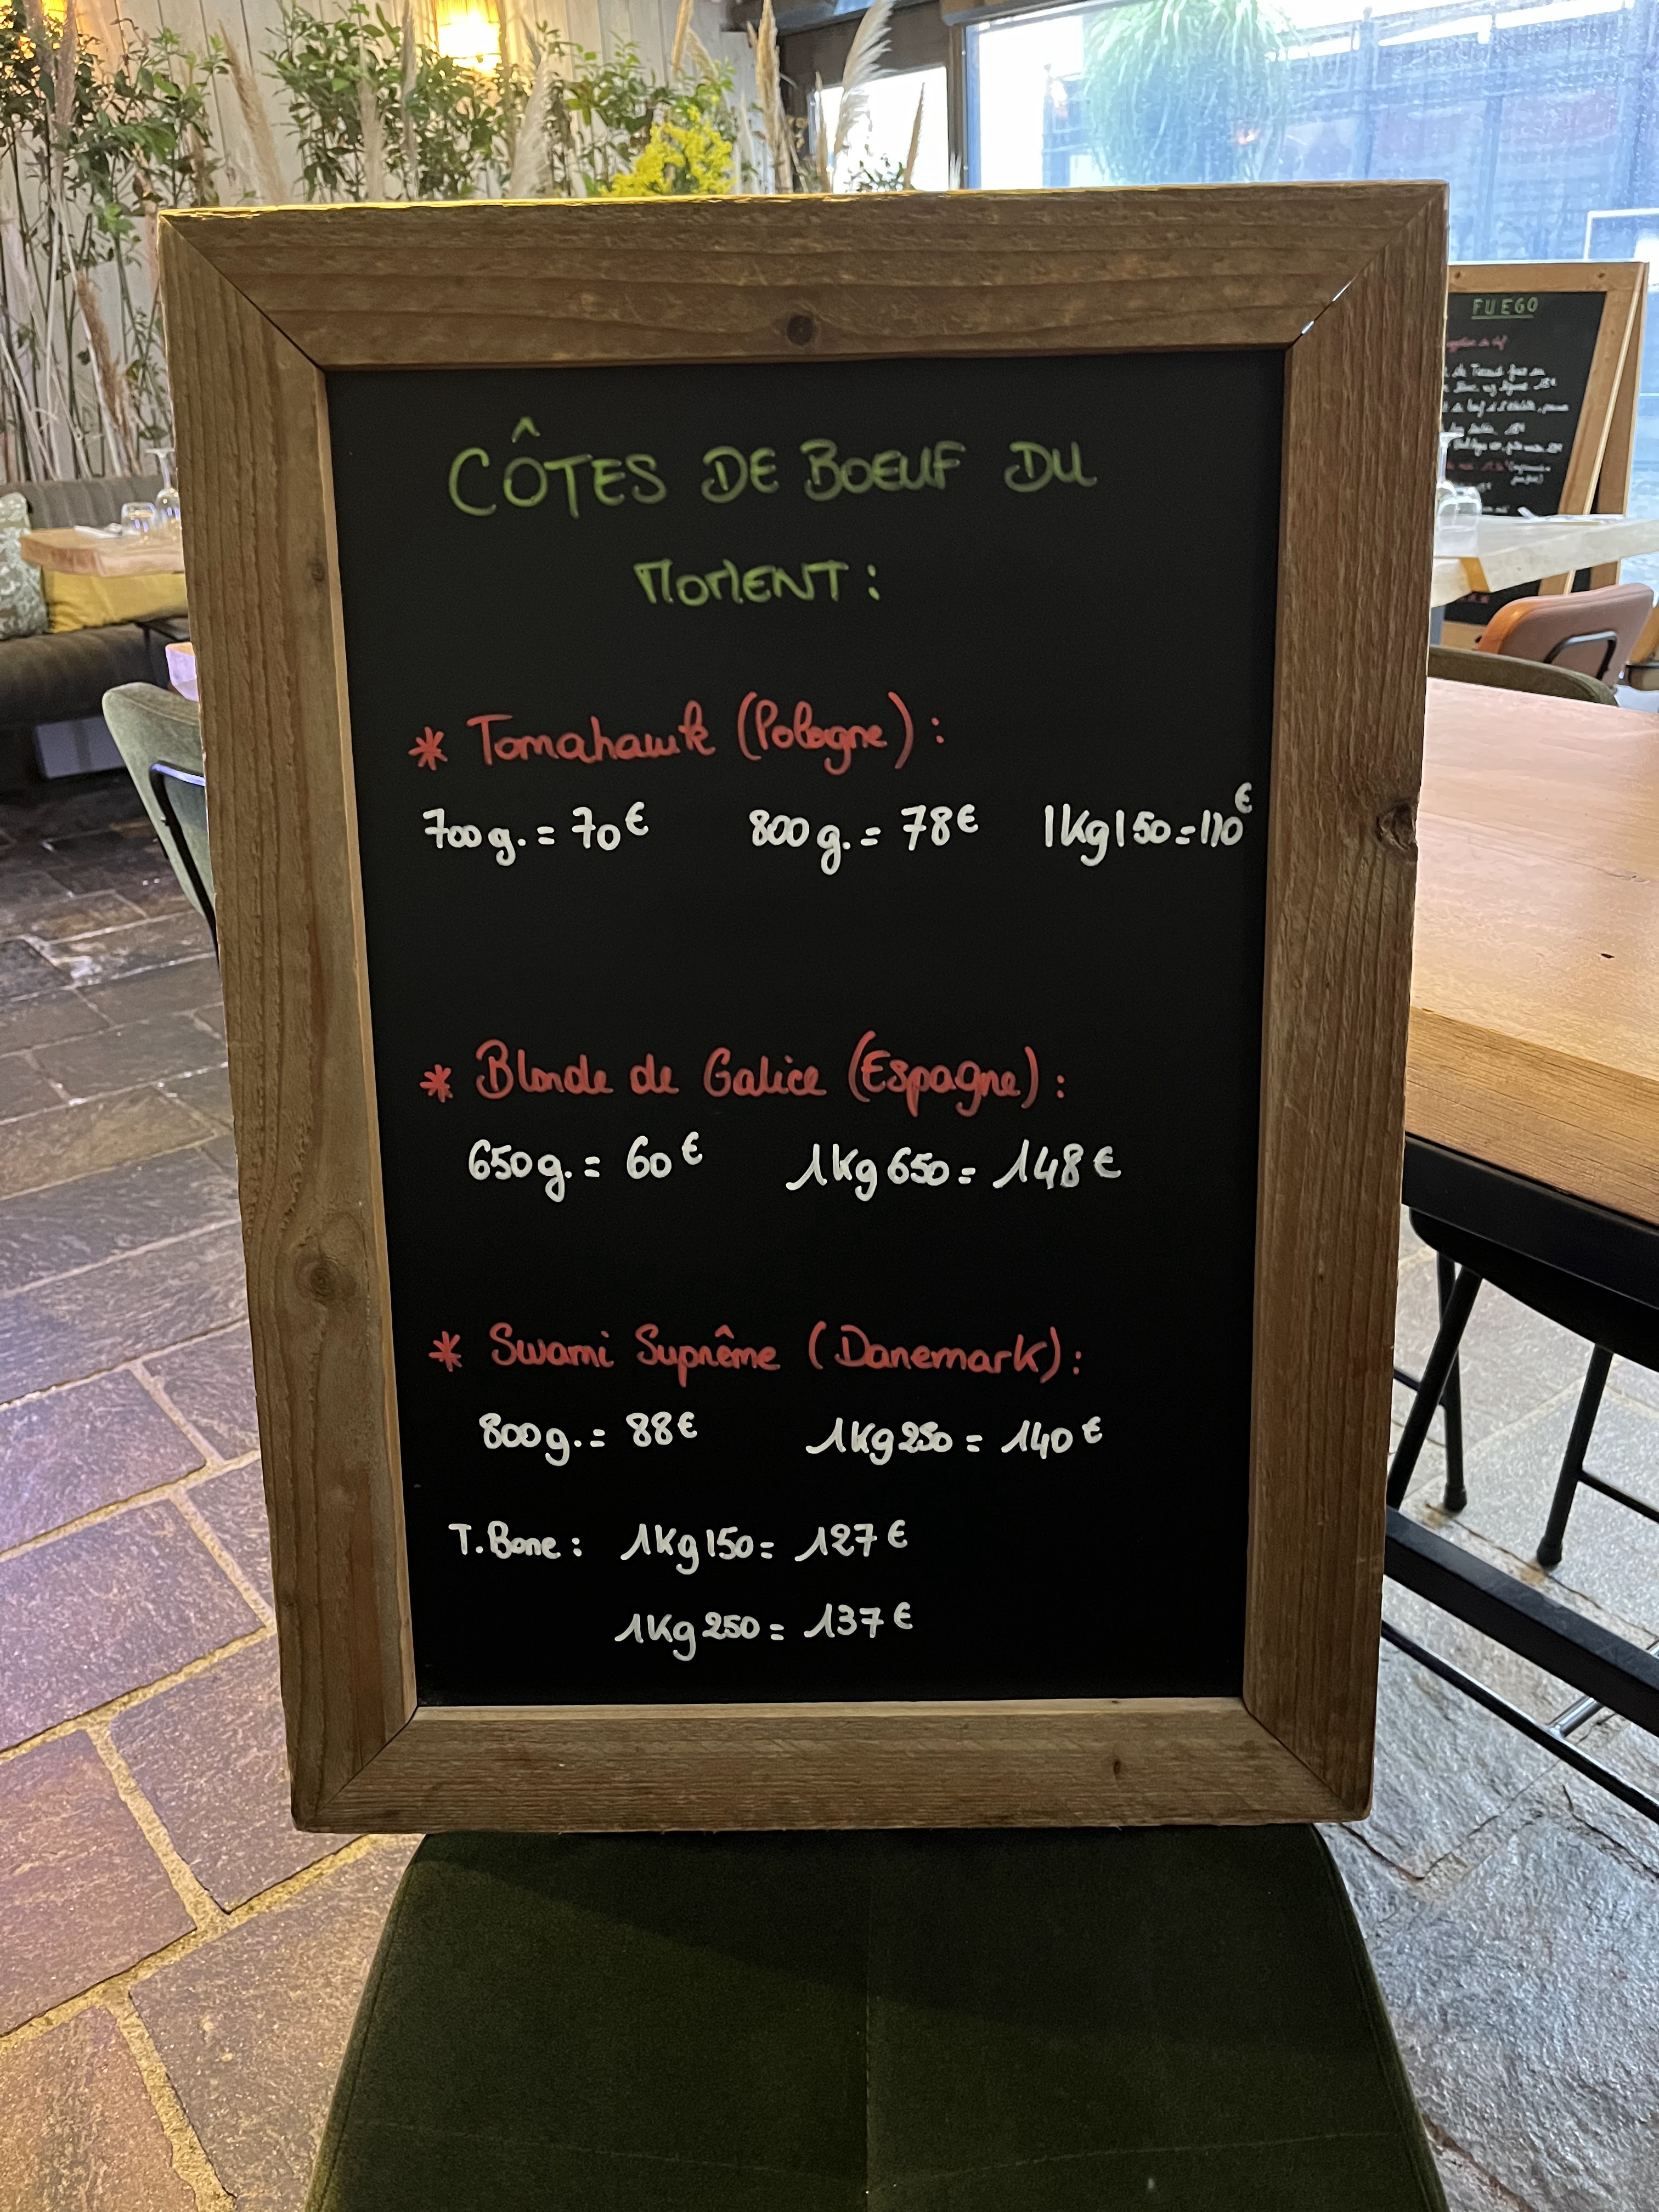 CÔTES DE BOEUF DU
MOMENT :
* Tomahawk (Pologne) :
700g. = 70€ 800g. = 78€ 1Kg150=110€
* Blonde de Galice (Espagne) :
650g. = 60€ 1Kg650 = 148€
* Swami Suprême (Danemark) :
800g. = 88€ 1Kg250 = 140€
T.Bone : 1Kg150 = 127€
1Kg250 = 137€
FUEGO